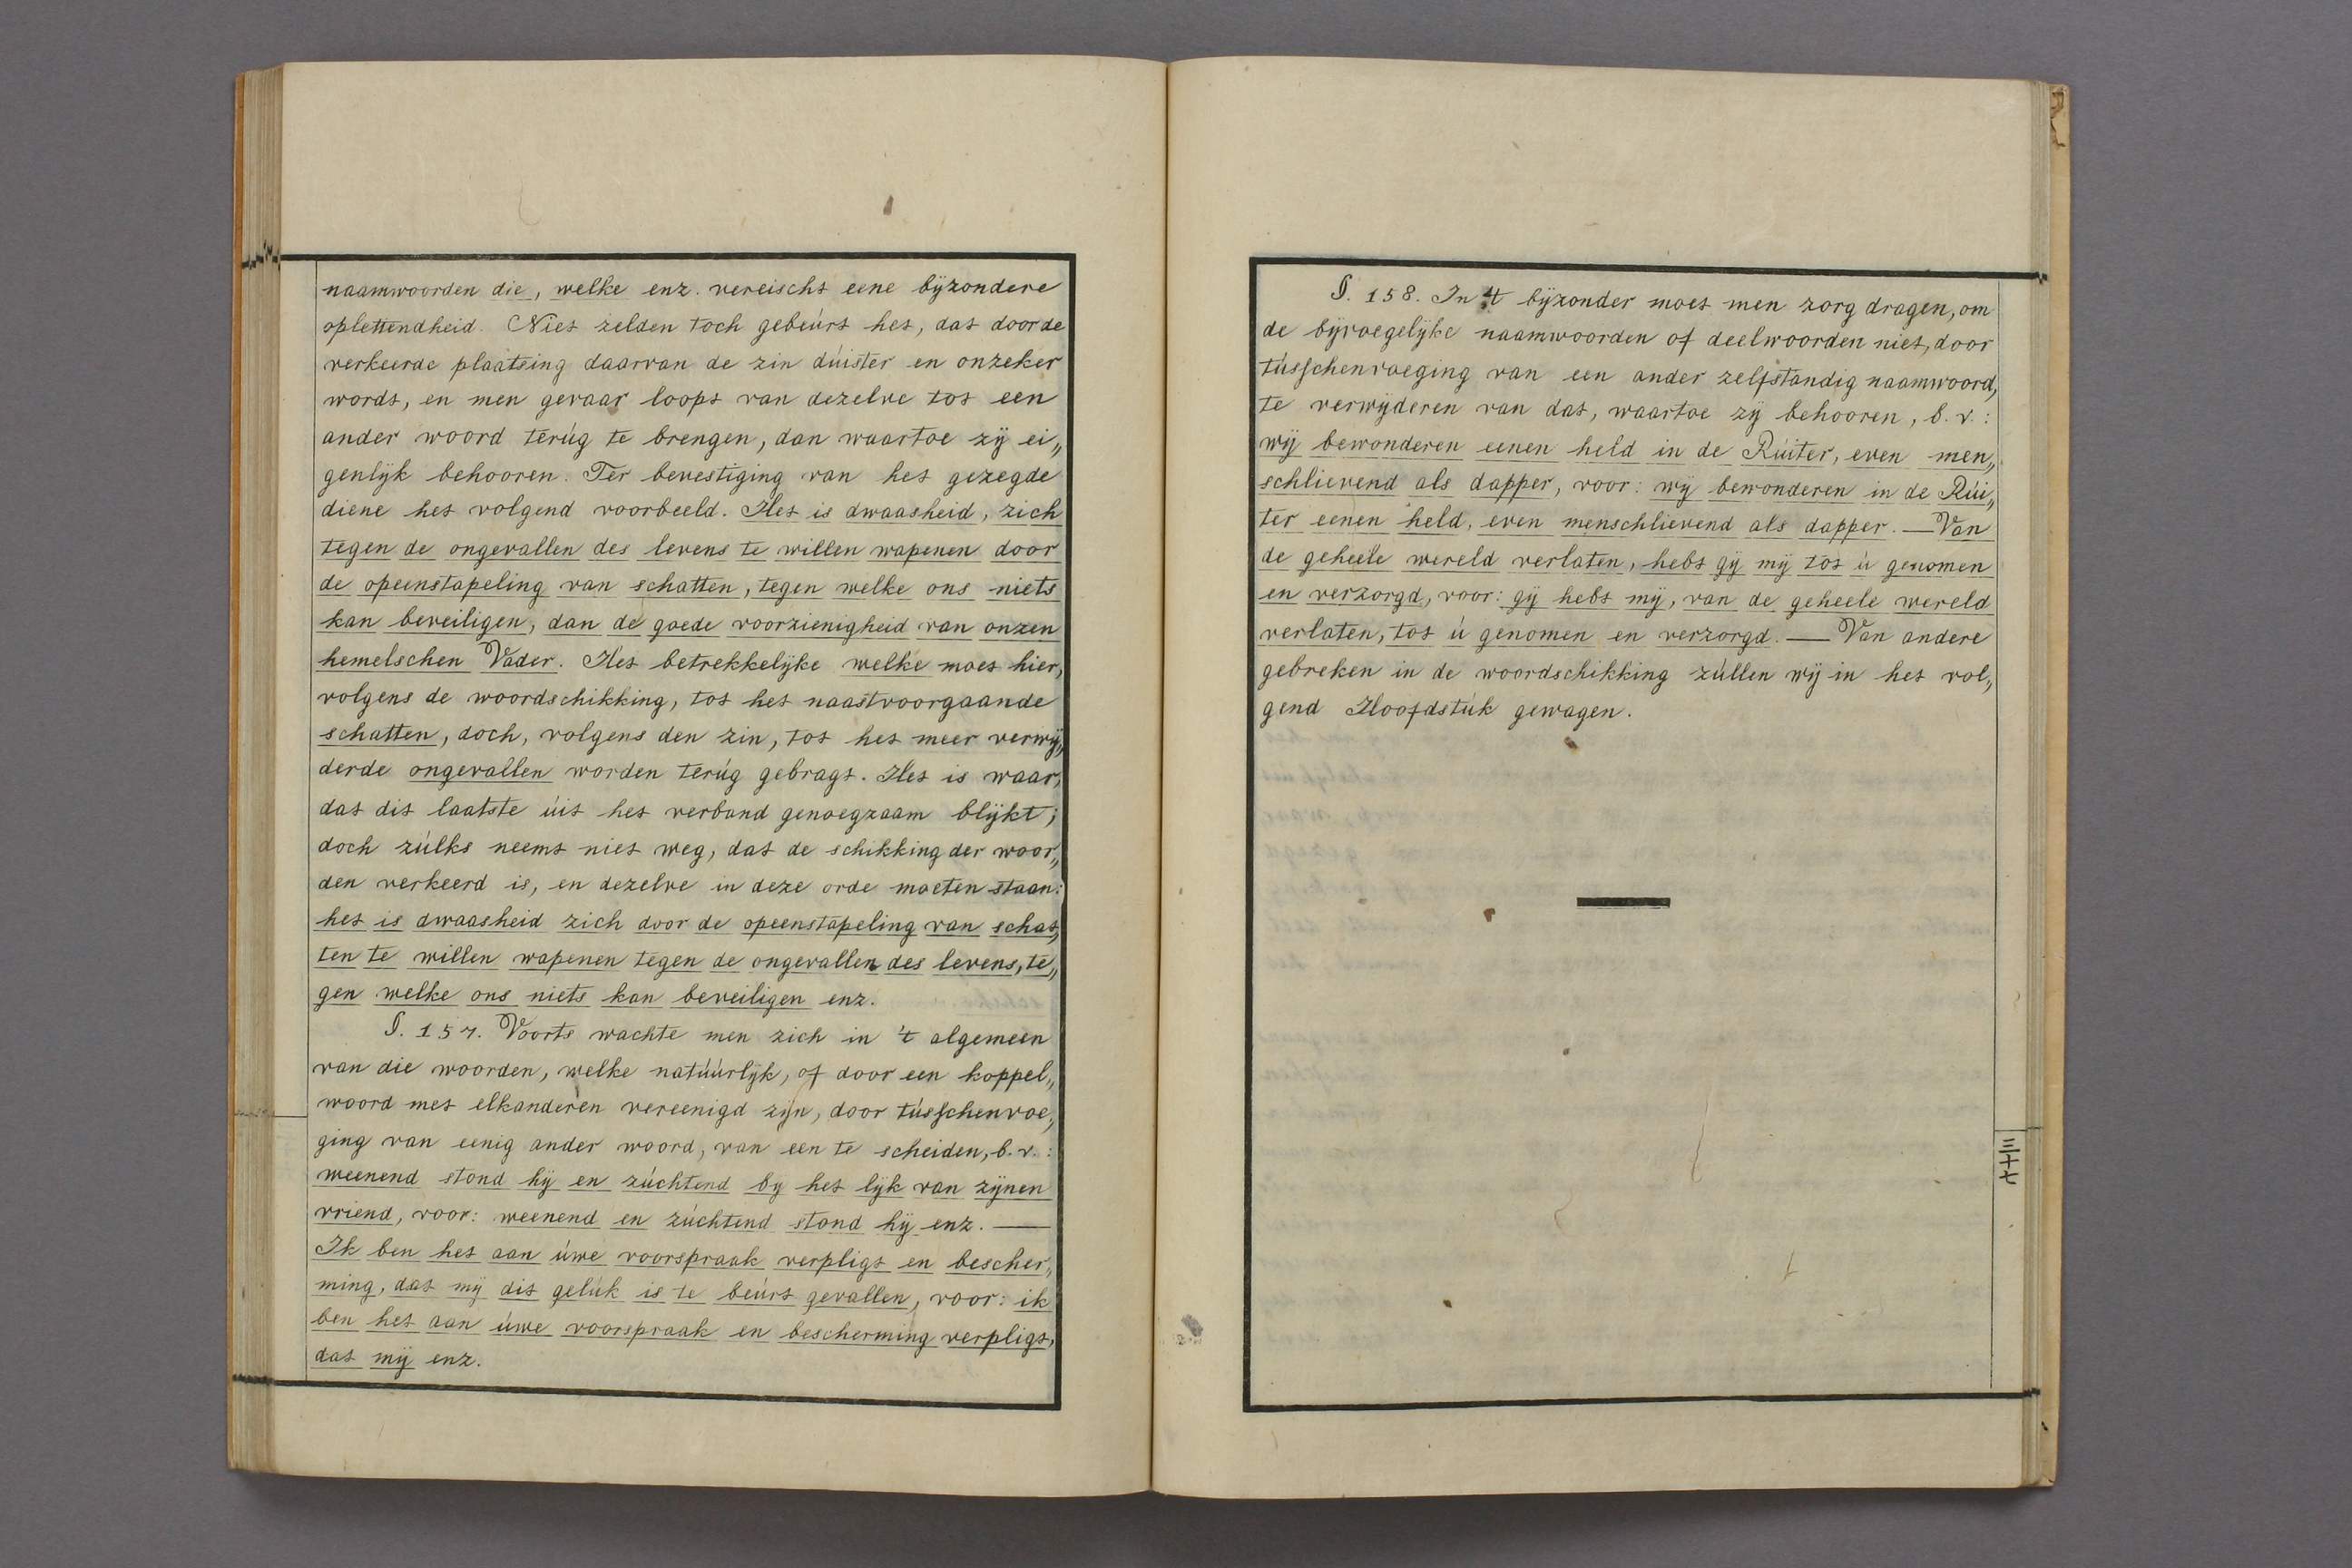 naamwoorden die, welke enz. vereischt eene bijzondere
oplettendheid. Niet zelden toch gebeúrt het, dat door de
verkeerde plaatsing daarvan de zin dúister en onzeker
wordt, en men gevaar loopt van dezelve tot een
ander woord terúg te brengen, dan waartoe zij ei„
genlijk behooren. Ter bevestiging van het gezegde
diene het volgend voorbeeld. Het is dwaasheid, zich
tegen de ongevallen des levens te willen wapenen door
de opeenstapeling van schatten, tegen welke ons niets
kan beveiligen, dan de goede voorzienigheid van onzen
hemelschen Vader. Het betrekkelijke welke moet hier,
volgens de woordschikking, tot het naastvoorgaande
schatten, doch, volgens den zin, tot het meer verwij„
derde ongevallen worden terúg gebragt. Het is waar,
dat dit laatste úit het verband genoegzaam blijkt;
doch zúlks neemt niet weg, dat de schikking der woor„
den verkeerd is, en dezelve in deze orde moeten staan:
het is dwaasheid zich door de opeenstapeling van schat„
ten te willen wapenen tegen de ongevallen des levens, te„
gen welke ons niets kan beveiligen enz.
§. 157. Voorts wachte men zich in 't algemeen
van die woorden, welke natúúrlijk, of door een koppel„
woord met elkanderen vereenigd zijn, door tússchenvoe„
ging van eenig ander woord, van een te scheiden, b. v.:
weenend stond hij en zúchtend by het lijk van zijnen
vriend, voor: weenend en zúchtend stond hij enz. —
Ik ben het aan úwe voorspraak verpligt en bescher„
ming, dat mij dit gelúk is te beúrt gevallen, voor: ik
ben het aan úwe voorspraak en bescherming verpligt,
dat mij enz.
§. 158. In 't bijzonder moet men zorg dragen, om
de bijvoegelijke naamwoorden of deelwoorden niet, door
tússchenvoeging van een ander zelfstandig naamwoord,
te verwijderen van dat, waartoe zij behooren, b. v.:
wij bewonderen eenen held in de Rúiter, even men„
schlievend als dapper, voor: wij bewonderen in de Rúi„
ter eenen held, even menschlievend als dapper. — Van
de geheele wereld verlaten, hebt gij mij tot ú genomen
en verzorgd, voor: gij hebt mij, van de geheele wereld
verlaten, tot ú genomen en verzorgd. — Van andere
gebreken in de woordschikking zúllen wij in het vol„
gend Hoofdstúk gewagen.
三十七